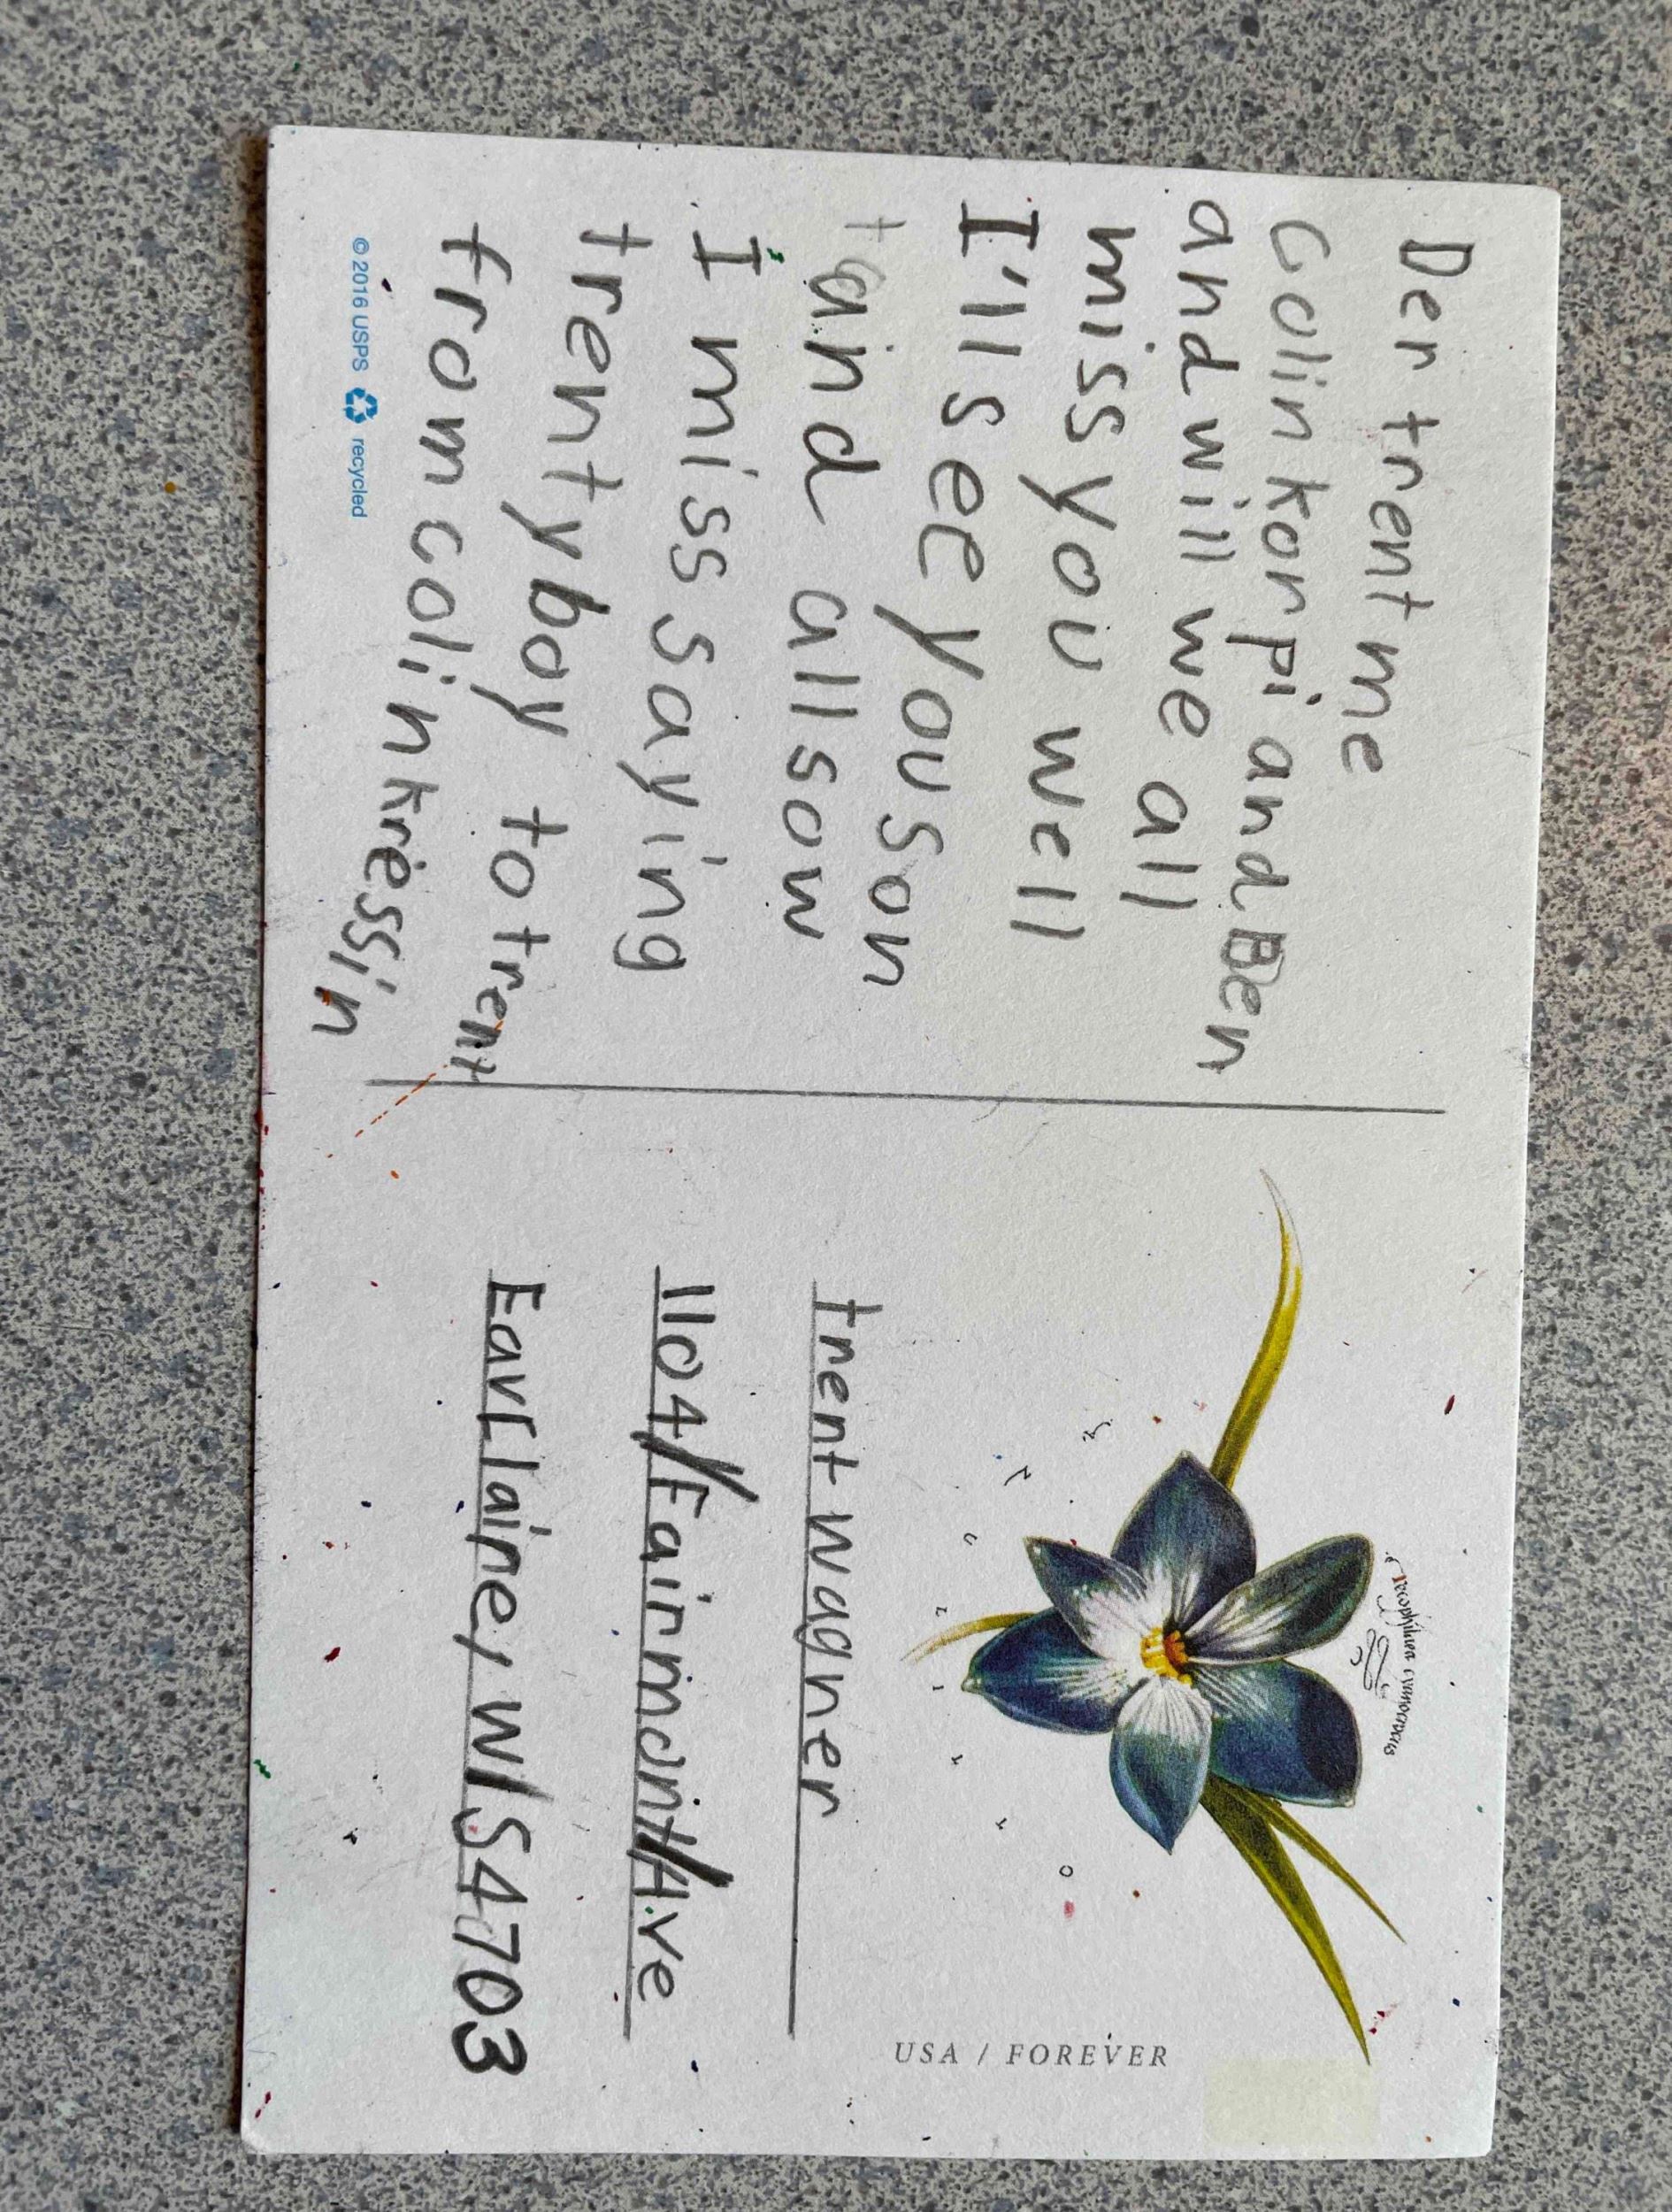 Der trent me
Colin korpi and Ben
and will we all
miss you well
I'll see you son
and all sow
I miss saying
trentyboy to trent
from colin kressin
© 2016 USPS recycled
Tecophilaea cyanocrocus
USA / FOREVER
trent wagner
1104/Fairmont/Ave
EavClaire, WI/54703